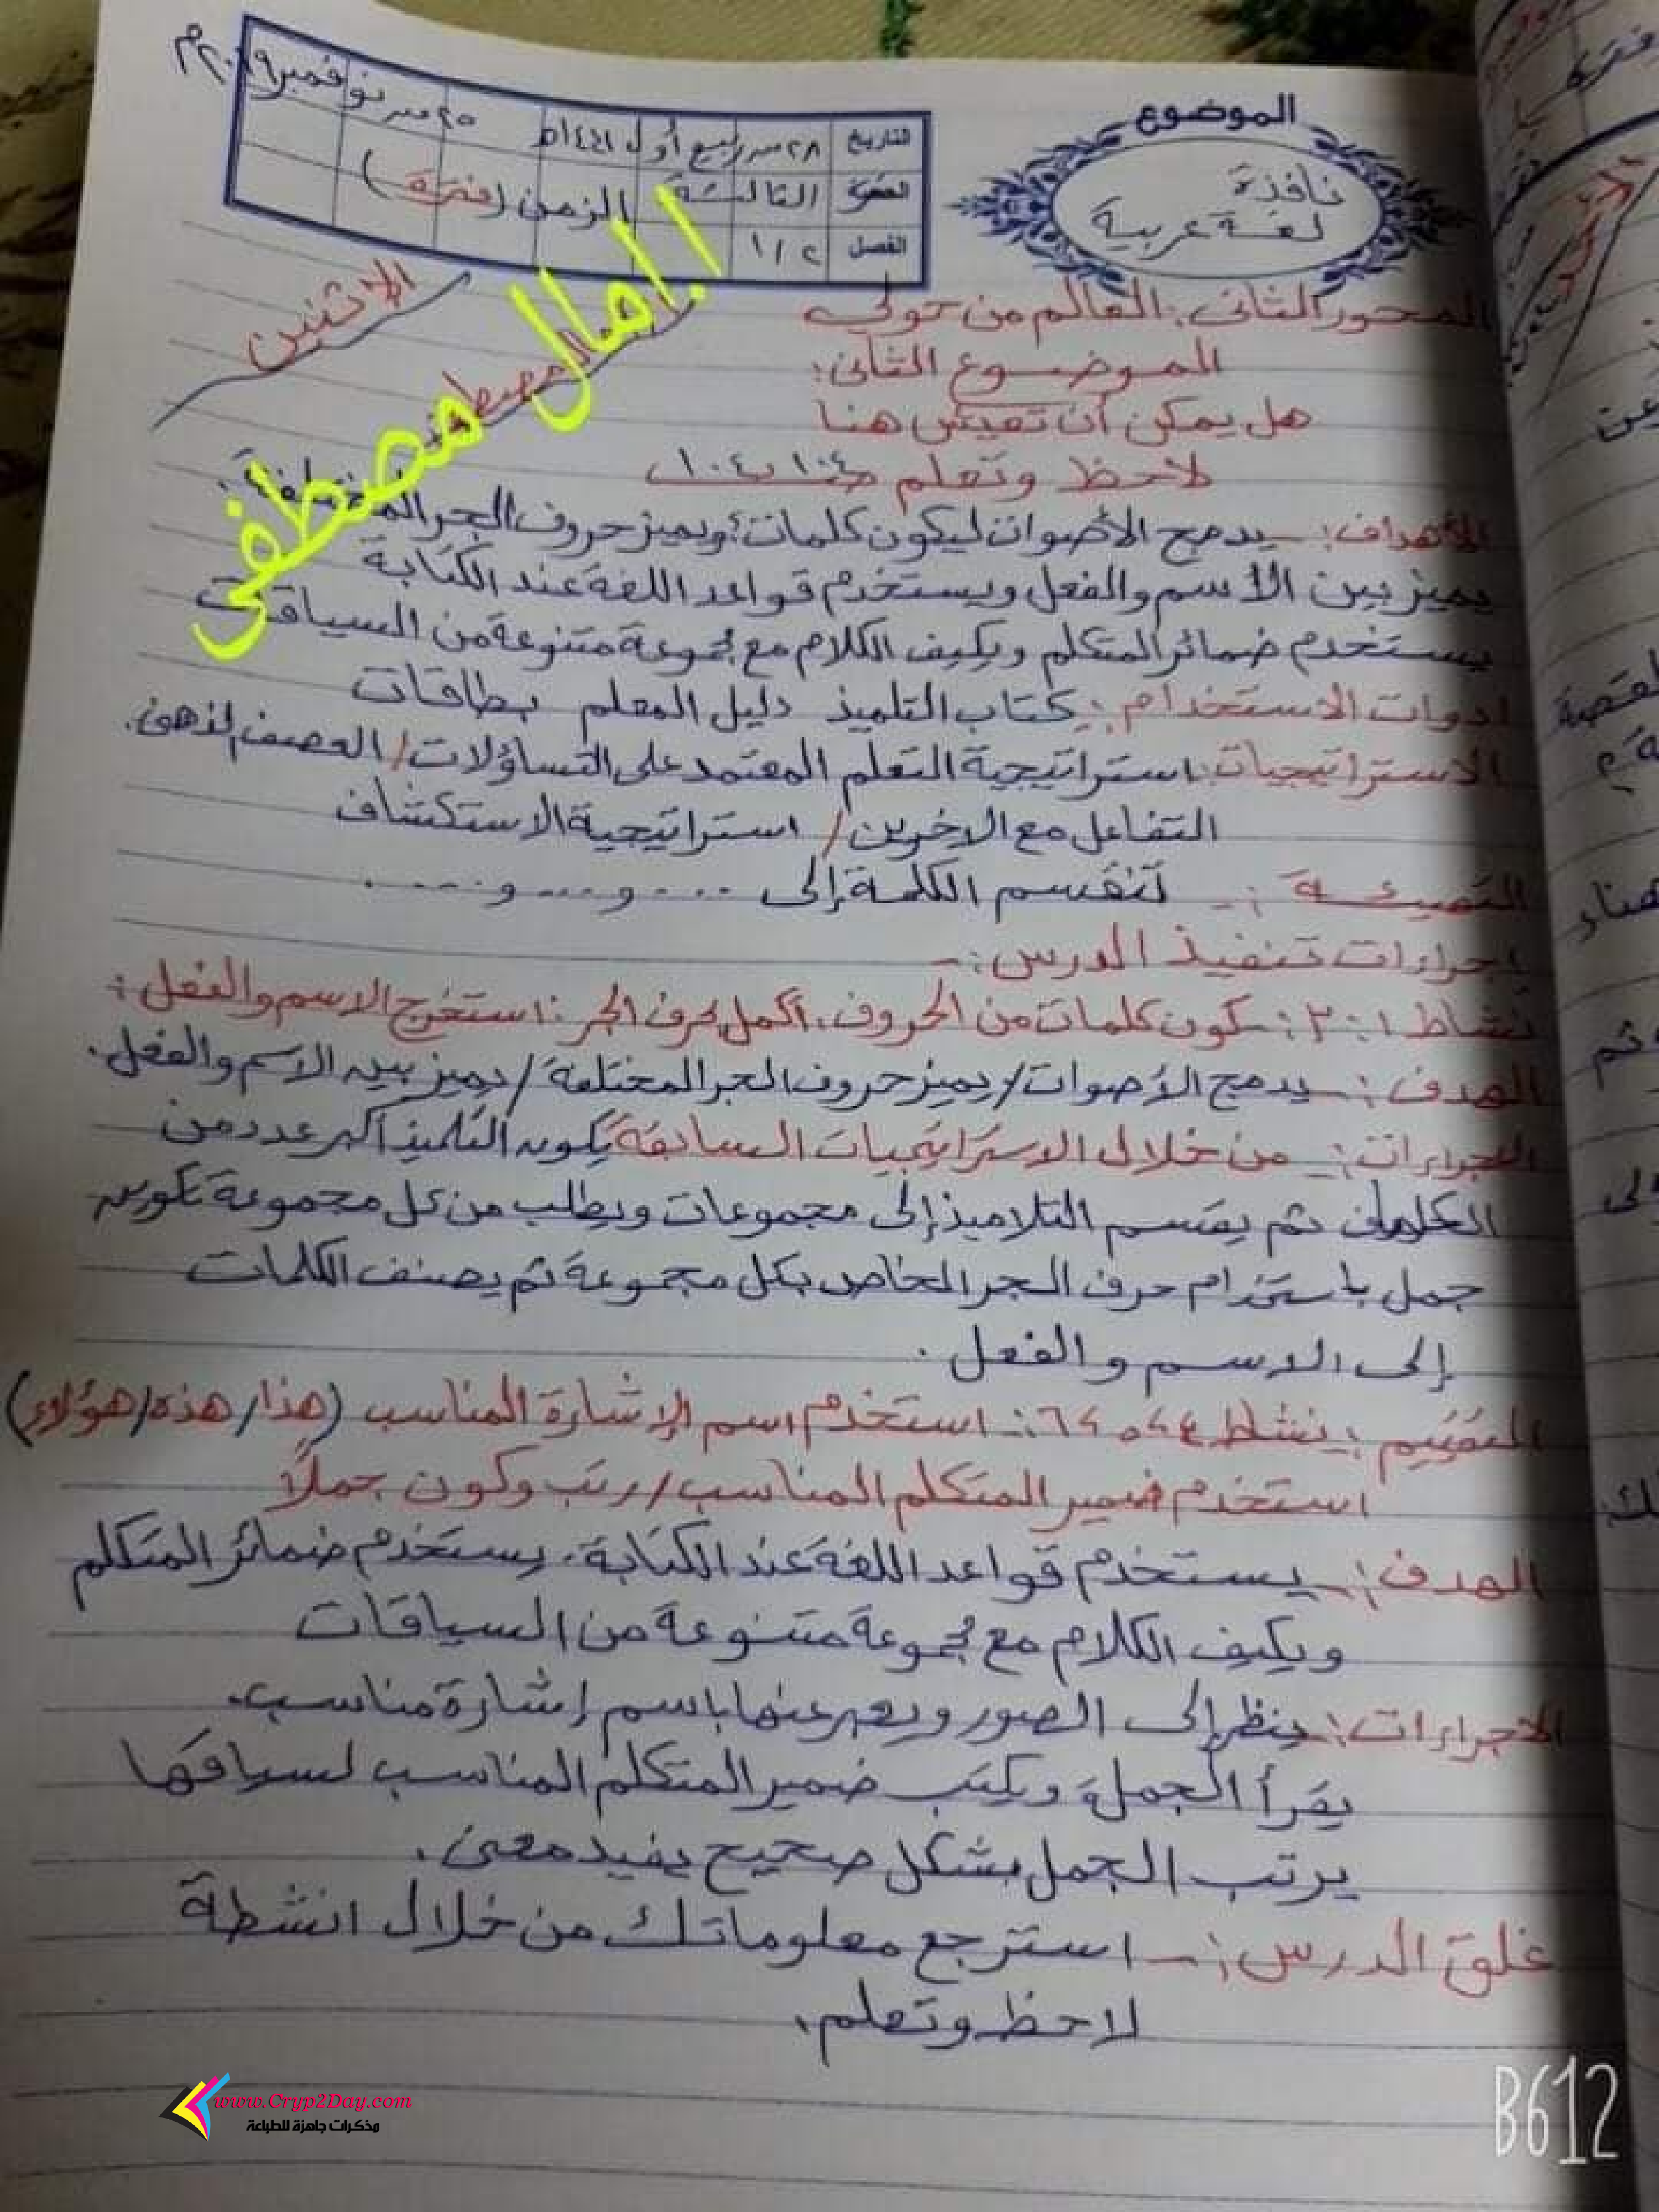 الموضوع
نافذة
لغة عربية
التاريخ ٢٨ من ربيع أول ١٤٤١ه ٢٥ من نوفمبر ٢٠١٩م
الثالثة الزمن (فترة)
الفصل ١/٢
الاثنين
المحور الثانى: العالم من حولي
الموضوع الثانى:
هل يمكن أن تعيش هنا
لاحظ وتعلم
امال مصطفى
الأهداف:- يدمج الأصوات ليكون كلمات، ويميز حروف الجر المختلفة.
يميز بين الأسم والفعل ويستخدم قواعد اللغة عند الكتابة
يستخدم ضمائر المتكلم ويكيف الكلام مع مجموعة متنوعة من السياقات
ادوات الاستخدام: كتاب التلميذ دليل المعلم بطاقات
الاستراتيجيات: استراتيجية التعلم المعتمد على التساؤلات/ العصف الذهنى.
التفاعل مع الاخرين/ استراتيجية الاستكشاف
التهيئة:- تنقسم الكلمة إلى .... و.... و....
إجراءات تنفيذ الدرس:-
نشاط ١: ٣: كون كلمات من الحروف. أكمل بحرف الجر: استخرج الاسم والفعل:
الهدف:- يدمج الأصوات/ يميز حروف الجر المختلفة/ يميز بين الاسم والفعل.
الاجراءات:- من خلال الاستراتيجيات السابقة يكون التلميذ أكبر عدد من
الكلمات ثم يقسم التلاميذ إلى مجموعات ويطلب من كل مجموعة تكوين
جمل باستخدام حرف الجر الخاص بكل مجموعة ثم يصنف الكلمات
إلى الاسم والفعل.
التقييم: نشاط ٤، ٥، ٦:- استخدم اسم الإشارة المناسب (هذا/ هذه/ هؤلاء)
استخدم ضمير المتكلم المناسب/ رتب وكون جملاً
الهدف:- يستخدم قواعد اللغة عند الكتابة. يستخدم ضمائر المتكلم
ويكيف الكلام مع مجموعة متنوعة من السياقات
الاجراءات:- ينظر إلى الصور ويعبر عنها باسم إشارة مناسب.
يقرأ الجملة ويكتب ضمير المتكلم المناسب لسياقها
يرتب الجمل بشكل صحيح يفيد معنى.
غلق الدرس:- استرجع معلوماتك من خلال انشطة
لاحظ وتعلم.
www.Cryp2Day.com
مذكرات جاهزة للطباعة
B612